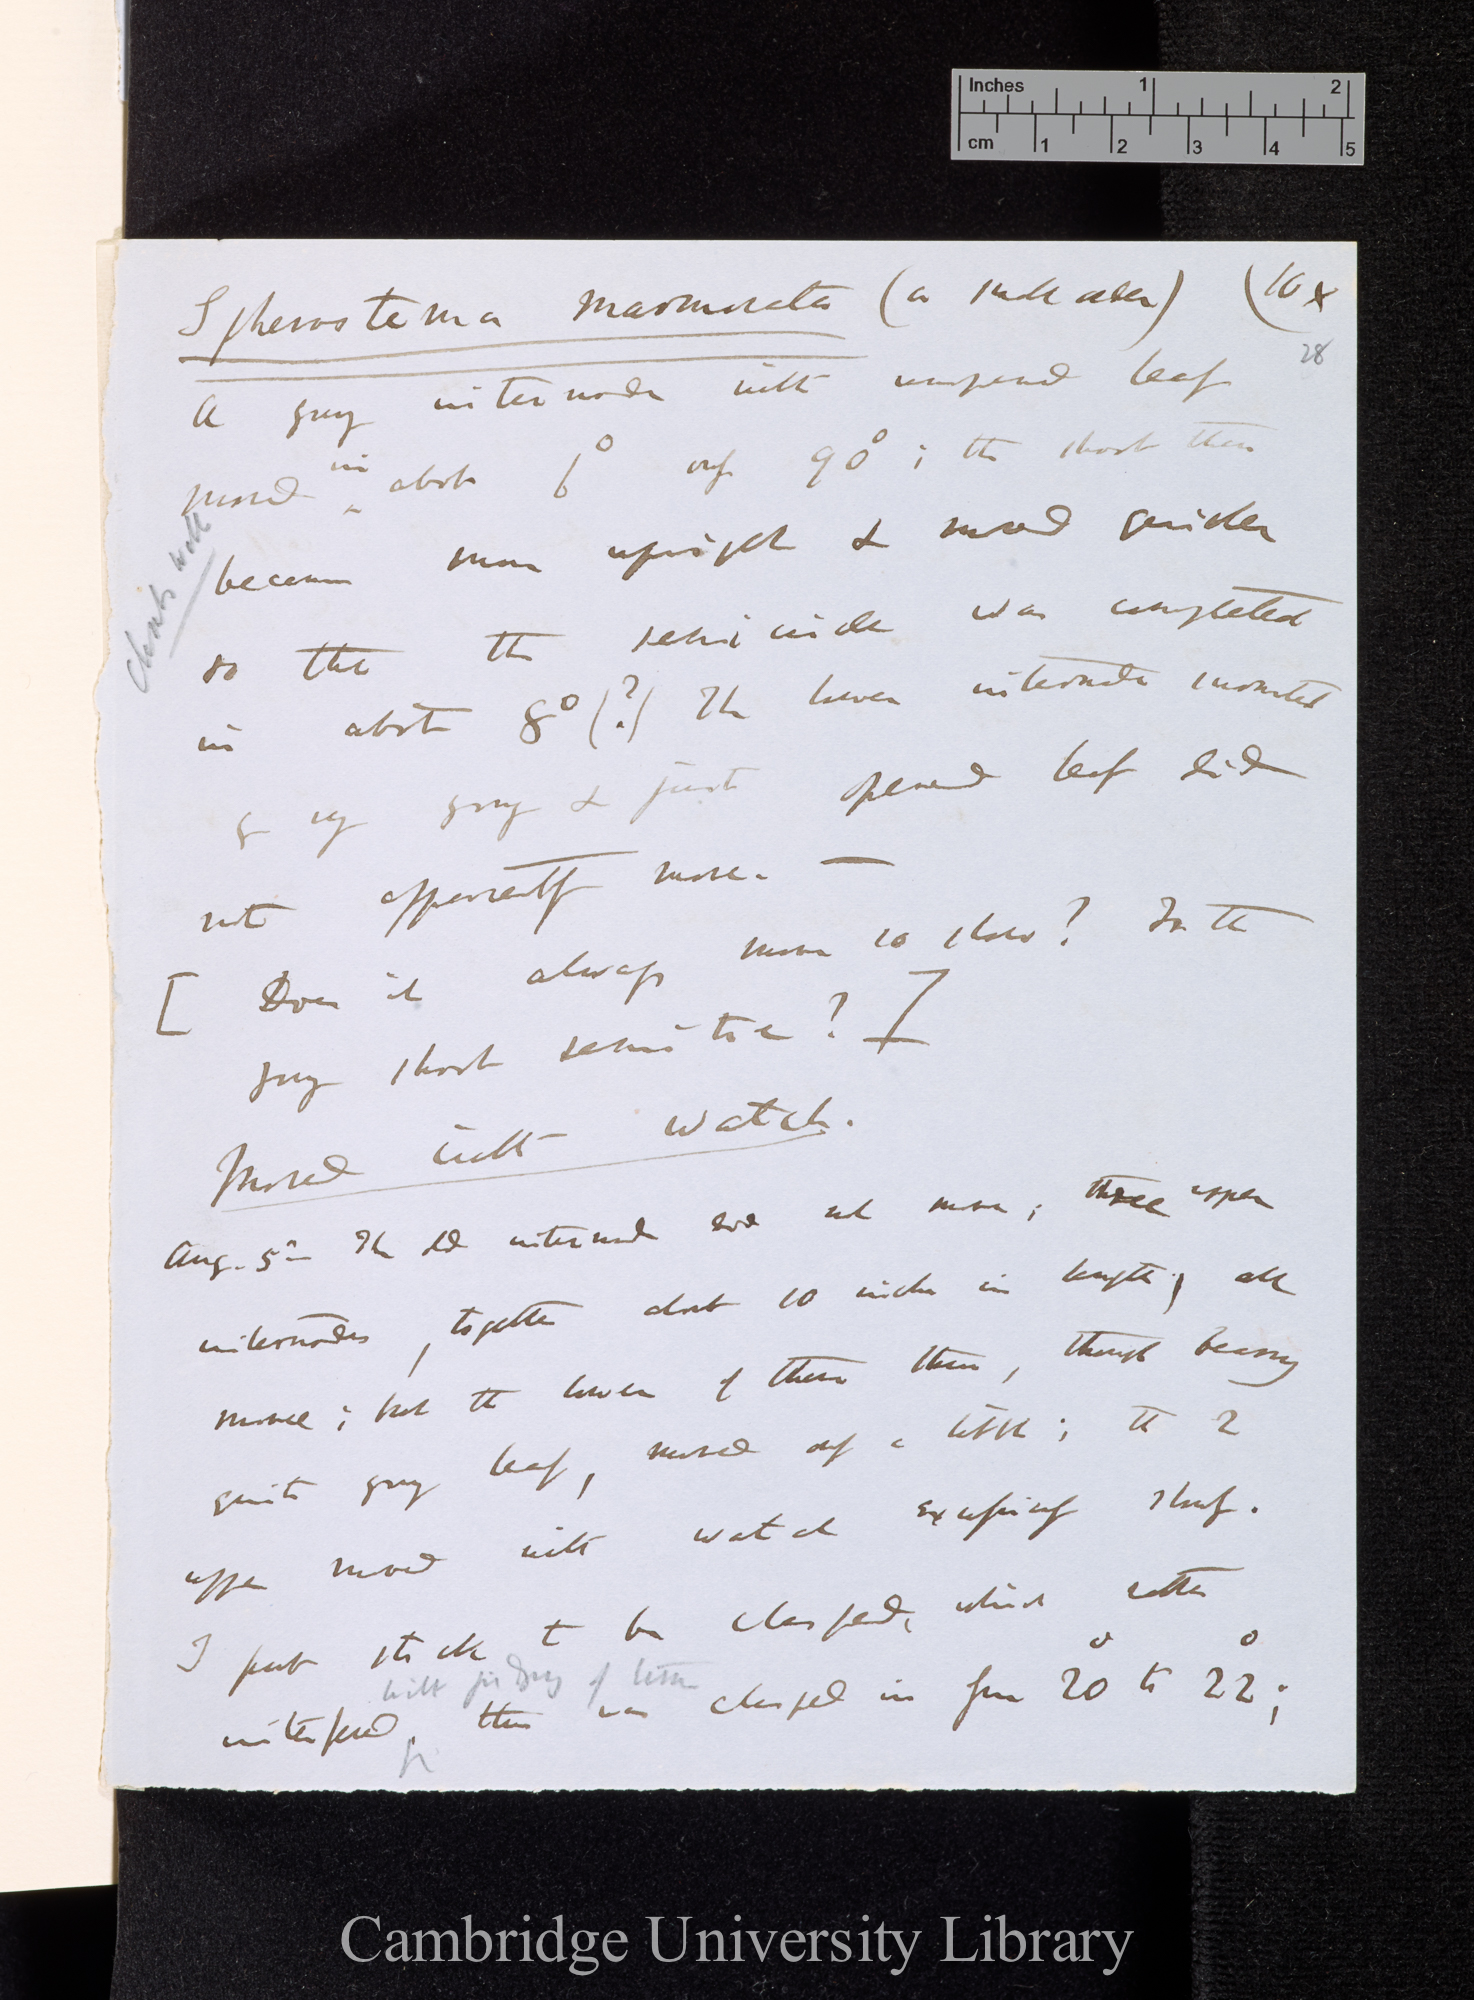 Inches 1 2
cm 1 2 3 4 5
Spherostema marmorata (a Schizandra) (10 x
28
A young internode with unopened leaf
moved in about 6° only 90°; the shoot then
became more upright & moved quicker
so that the semicircle was completed
in about 8° (?) The lower internode
young & just opened leaf did
not apparently move. —
[ Does it always move so slow? Is the
young shoot sensitive? ]
Moved with watch.
Aug. 5th The old internode did not move; three upper
internodes, together about 10 inches in length; all
moved; but the lower of these three, though bearing
quite young leaf, moved only a little; the 2
upper moved with watch excessively slowly.
I put stick to be clasped, which rather
interfered, this was clasped in from 20° to 22°;
Cambridge University Library